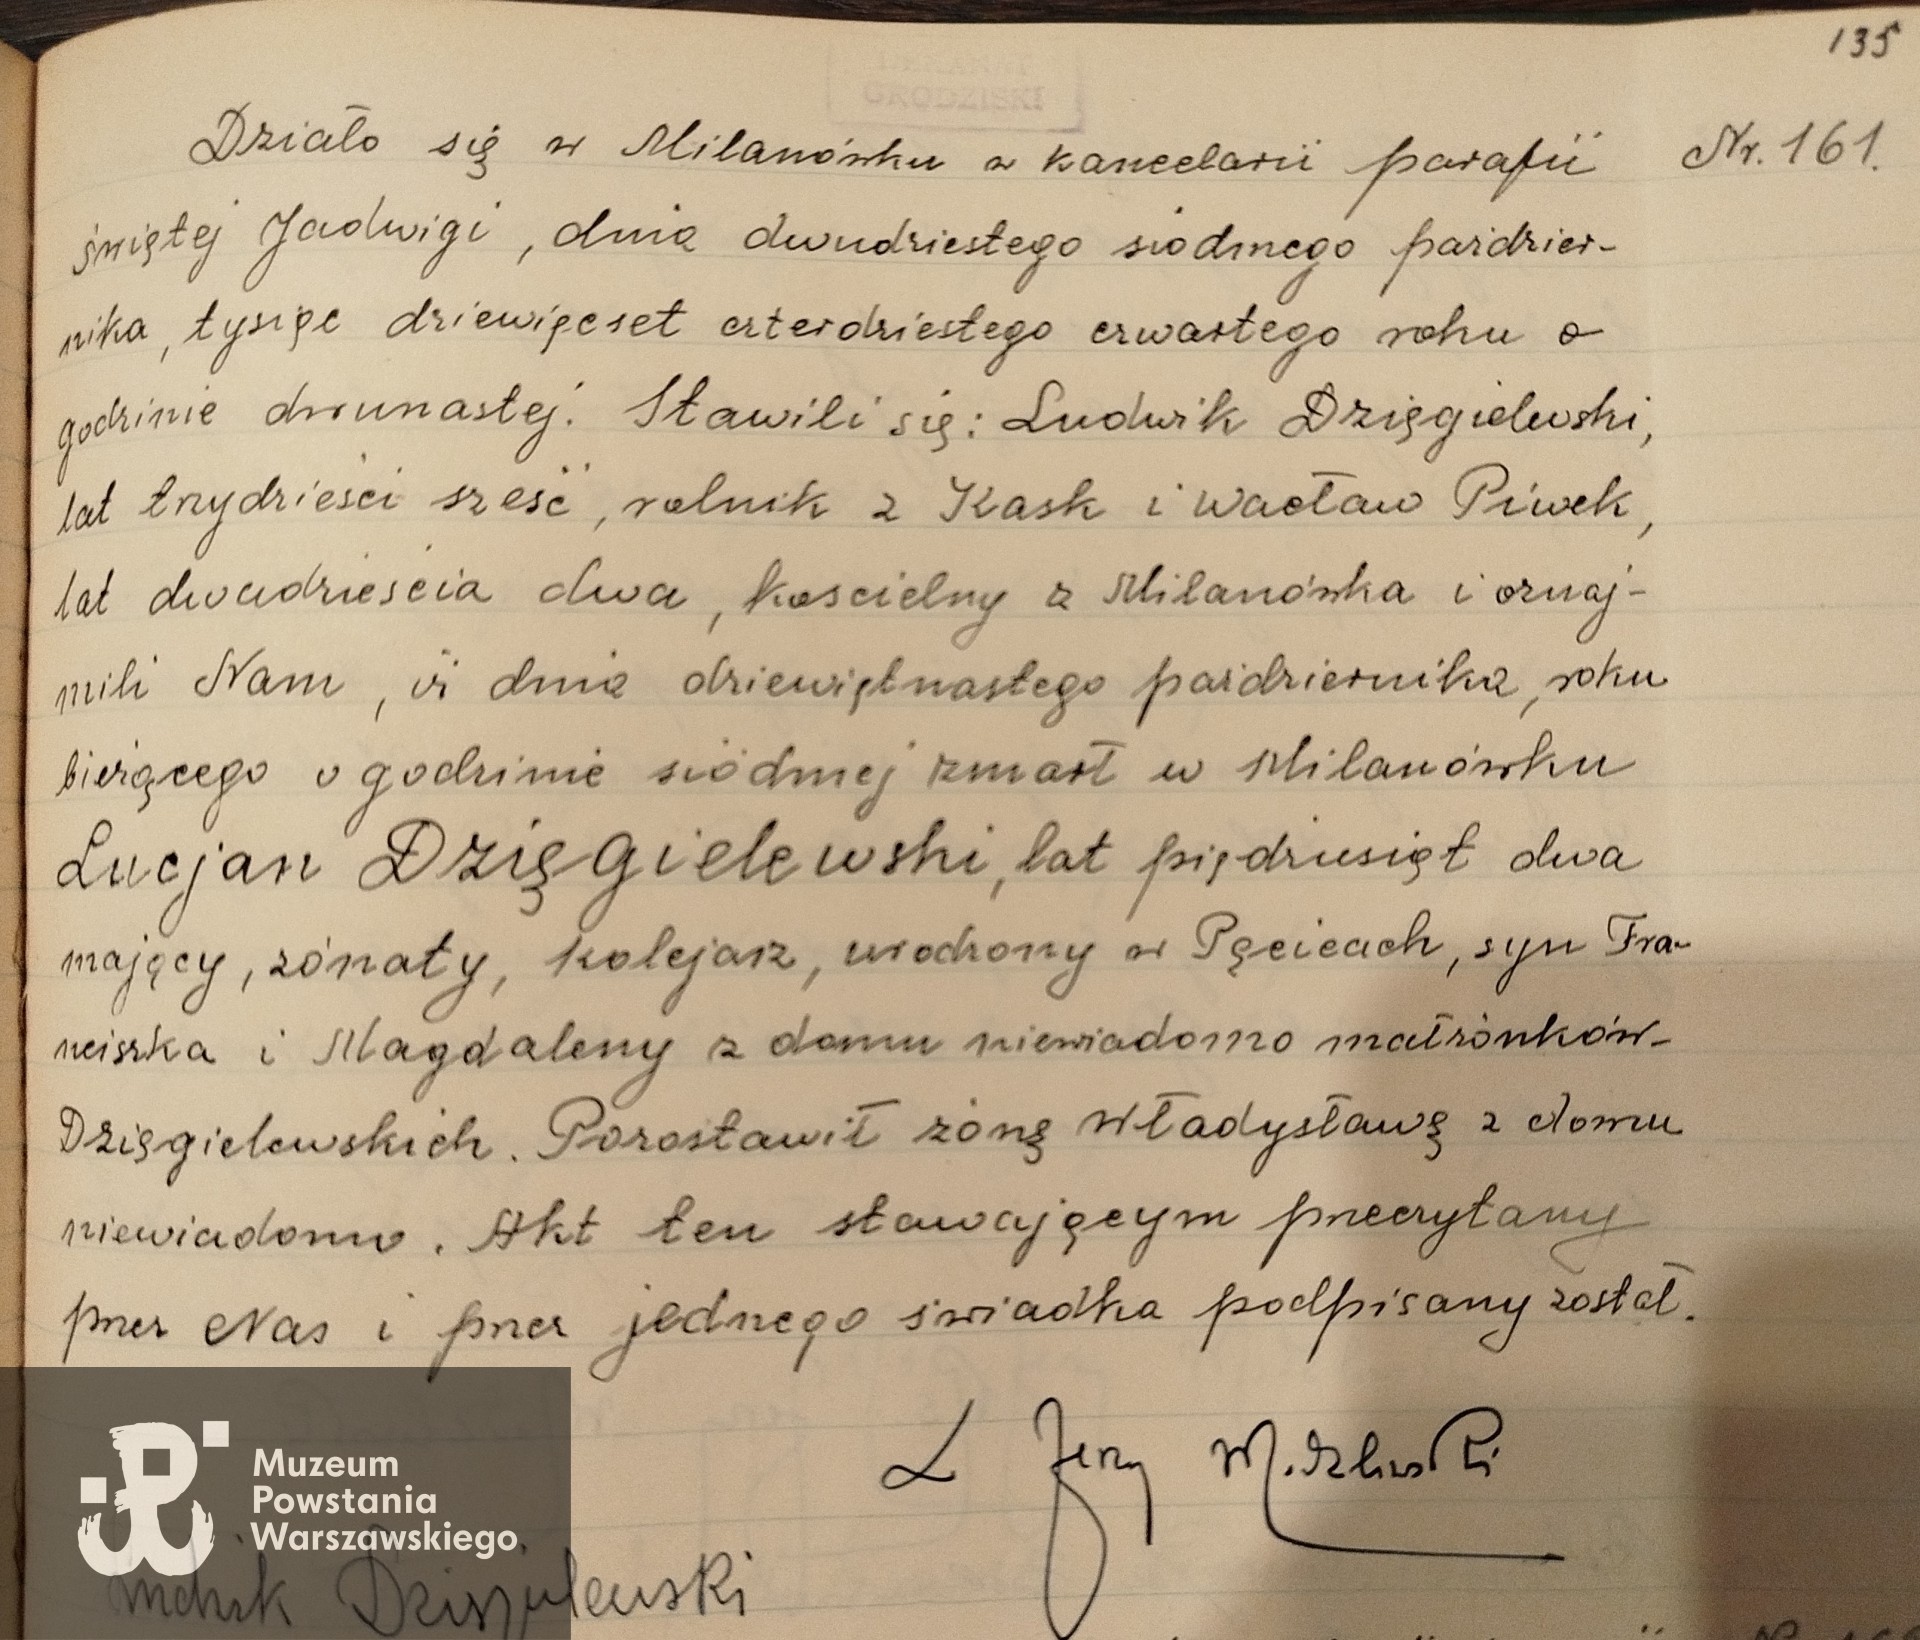 135
DEKANAT
GRODZISKI
Działo się w Milanówku w kancelarii parafii Nr. 161.
świętej Jadwigi, dnia dwudziestego siódmego paździer-
nika, tysiąc dziewięćset czterdziestego czwartego roku o
godzinie dwunastej. Stawili się: Ludwik Dzięgielewski,
lat trzydzieści sześć, rolnik z Kask i Wacław Piwek,
lat dwadzieścia dwa, kościelny z Milanówka i oznaj-
mili Nam, iż dnia dziewiętnastego października, roku
bieżącego o godzinie siódmej zmarł w Milanówku
Lucjan Dzięgielewski, lat pięćdziesiąt dwa
mający, żonaty, kolejarz, urodzony w Pęcicach, syn Fra-
nciszka i Magdaleny z domu niewiadomo małżonków-
Dzięgielewskich. Pozostawił żonę Władysławę z domu
niewiadomo. Akt ten stawającym przeczytany
przez Nas i przez jednego świadka podpisany został.
Jerzy
Muzeum
Powstania
Warszawskiego
Ludwik Dzięgielewski